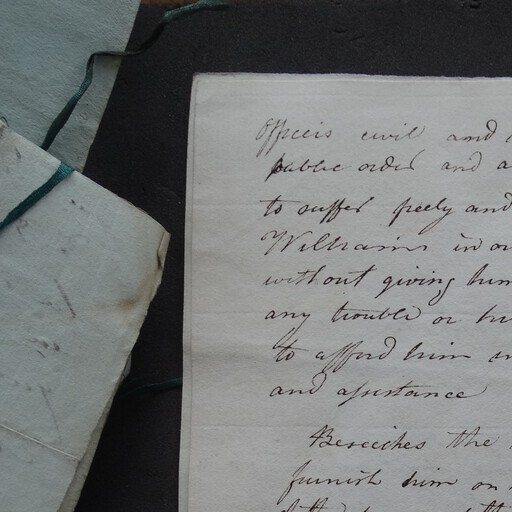 Officers civil and
public order and a
to suffer freely and
Williams in or
without giving him
any trouble or hi
to afford him
and assistance
Beseeches the
furnish him on